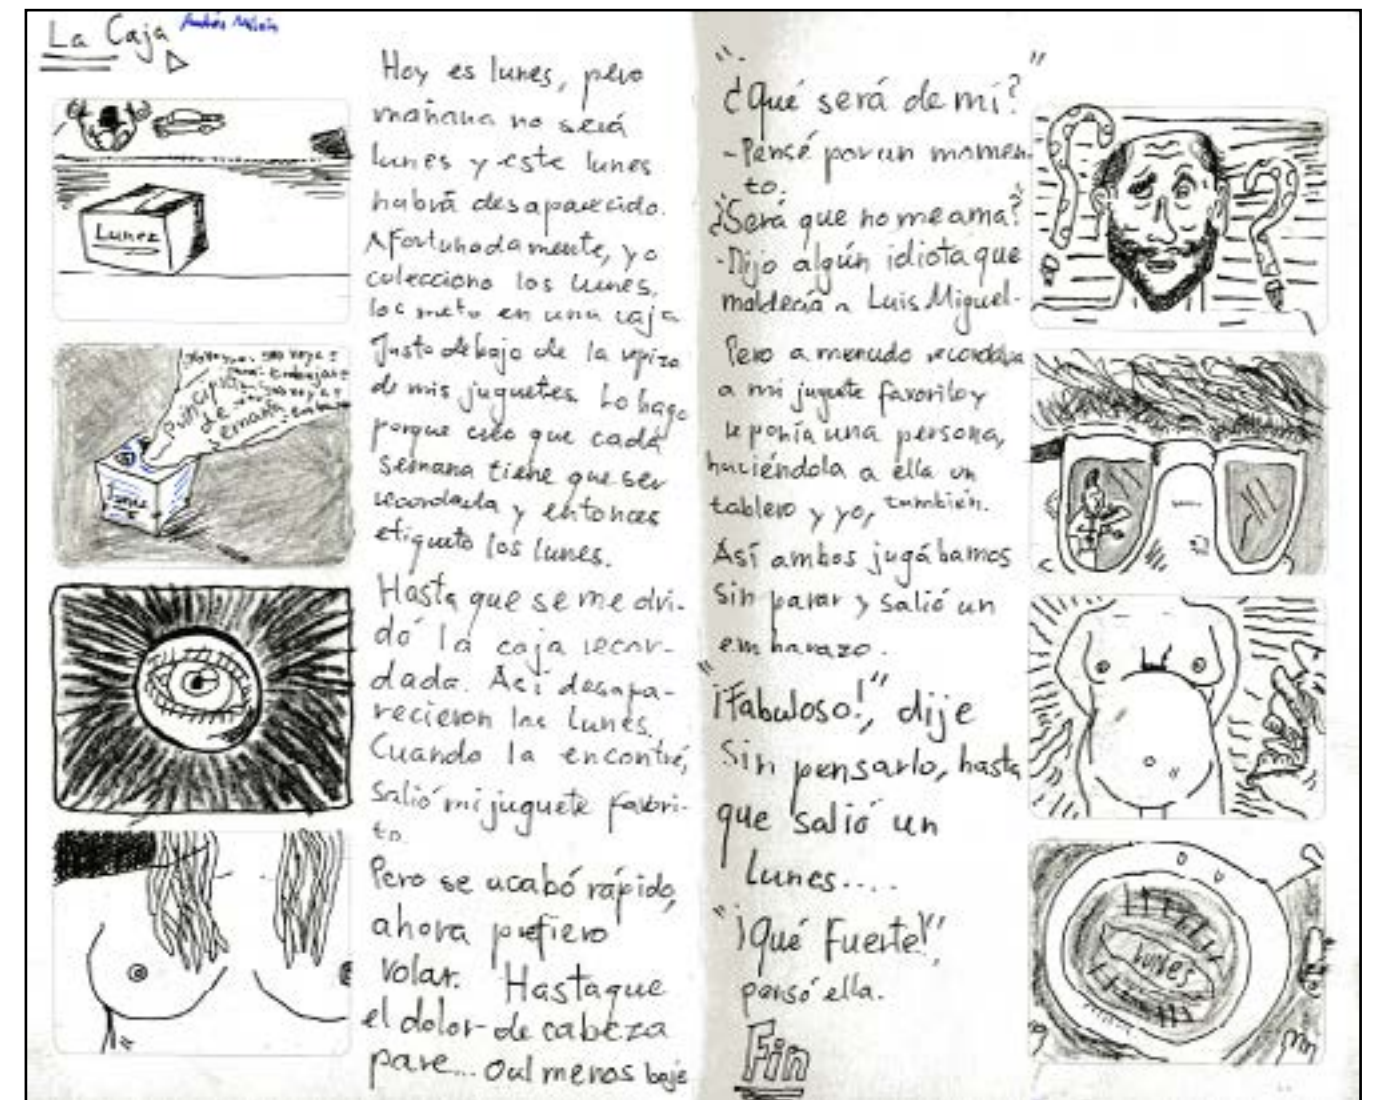 La Caja
Lunes
Hoy es lunes, pero
mañana no será
lunes y este lunes
habrá desaparecido.
Afortunadamente, yo
colecciono los lunes,
los meto en una caja
Justo debajo de la repiza
de mis juguetes. Lo hago
porque creo que cada
semana tiene que ser
recordada y entonces
etiqueto los lunes.
Hasta que se me olvi-
dó la caja recor-
dada. Así desapa-
recieron los Lunes.
Cuando la encontré,
salió mi juguete favori-
to.
Pero se acabó rápido,
ahora prefiero
volar. Hasta que
el dolor de cabeza
pare... O al menos baje
principio
de
semana
"¿Qué será de mí?"
- Pensé por un momen-
to.
"¿Será que no me ama?"
-Dijo algún idiota que
maldecía a Luis Miguel-
Pero a menudo recordaba
a mi juguete favorito y
le ponía una persona,
haciéndola a ella un
tablero y yo, también.
Así ambos jugábamos
sin parar y salió un
embarazo.
"¡Fabuloso!", dije
sin pensarlo, hasta
que salió un
Lunes....
"¡Qué Fuerte!",
pensó ella.
Fin
lunes